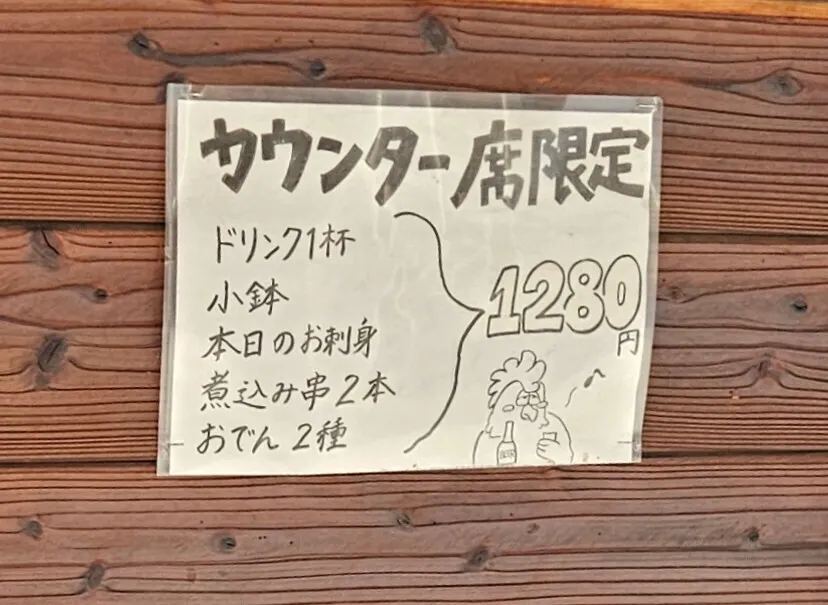 カウンター席限定
ドリンク1杯
小鉢
本日のお刺身
煮込み串2本
おでん2種
1280
円